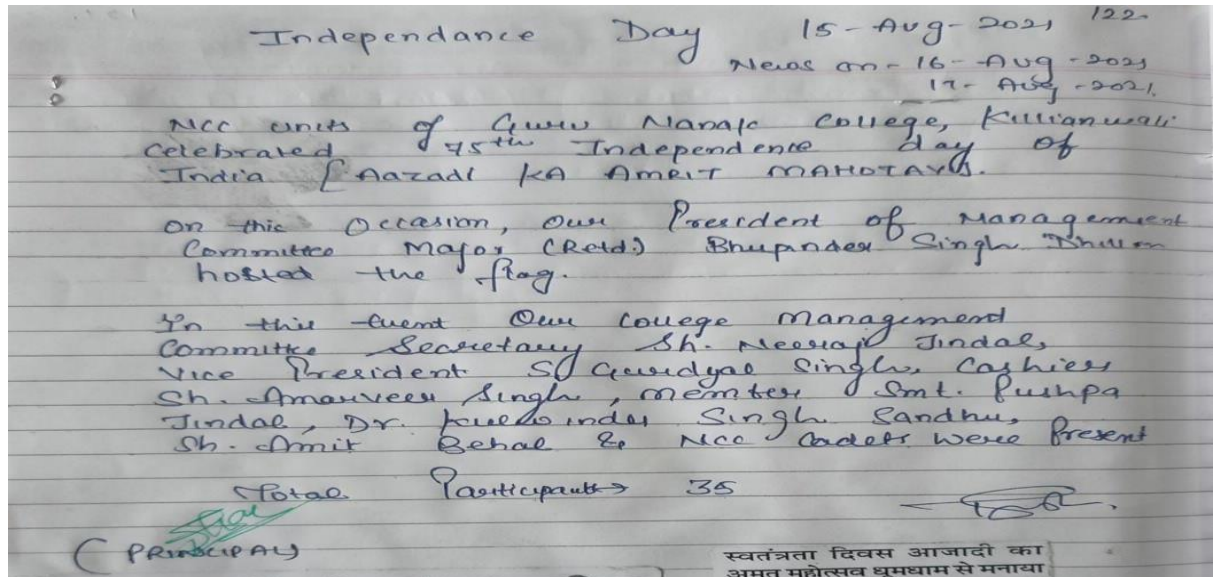 122
Independance Day 15-Aug-2021
News on - 16-Aug-2021
17-Aug-2021.
NCC units of Guru Nanak College, Killianwali
Celebrated 75th Independence day of
India [Aazadi KA AMRIT MAHOTAVS.
On this Occasion, Our President of Management
Committee Major (Retd.) Bhupinder Singh Dhillon
hosted the flag.
In this Event Our College management
Committe Secretary Sh. Neeraj Jindal,
Vice President S. Gurdyal Singh, Cashier
Sh. Amarveer Singh, member Smt. Pushpa
Jindal, Dr. Kulwinder Singh Sandhu,
Sh. Amit Behal & NCC Cadets were Present
Total Participants → 35
(PRINCIPAL)
स्वतंत्रता दिवस आजादी का
अमृत महोत्सव धूमधाम से मनाया